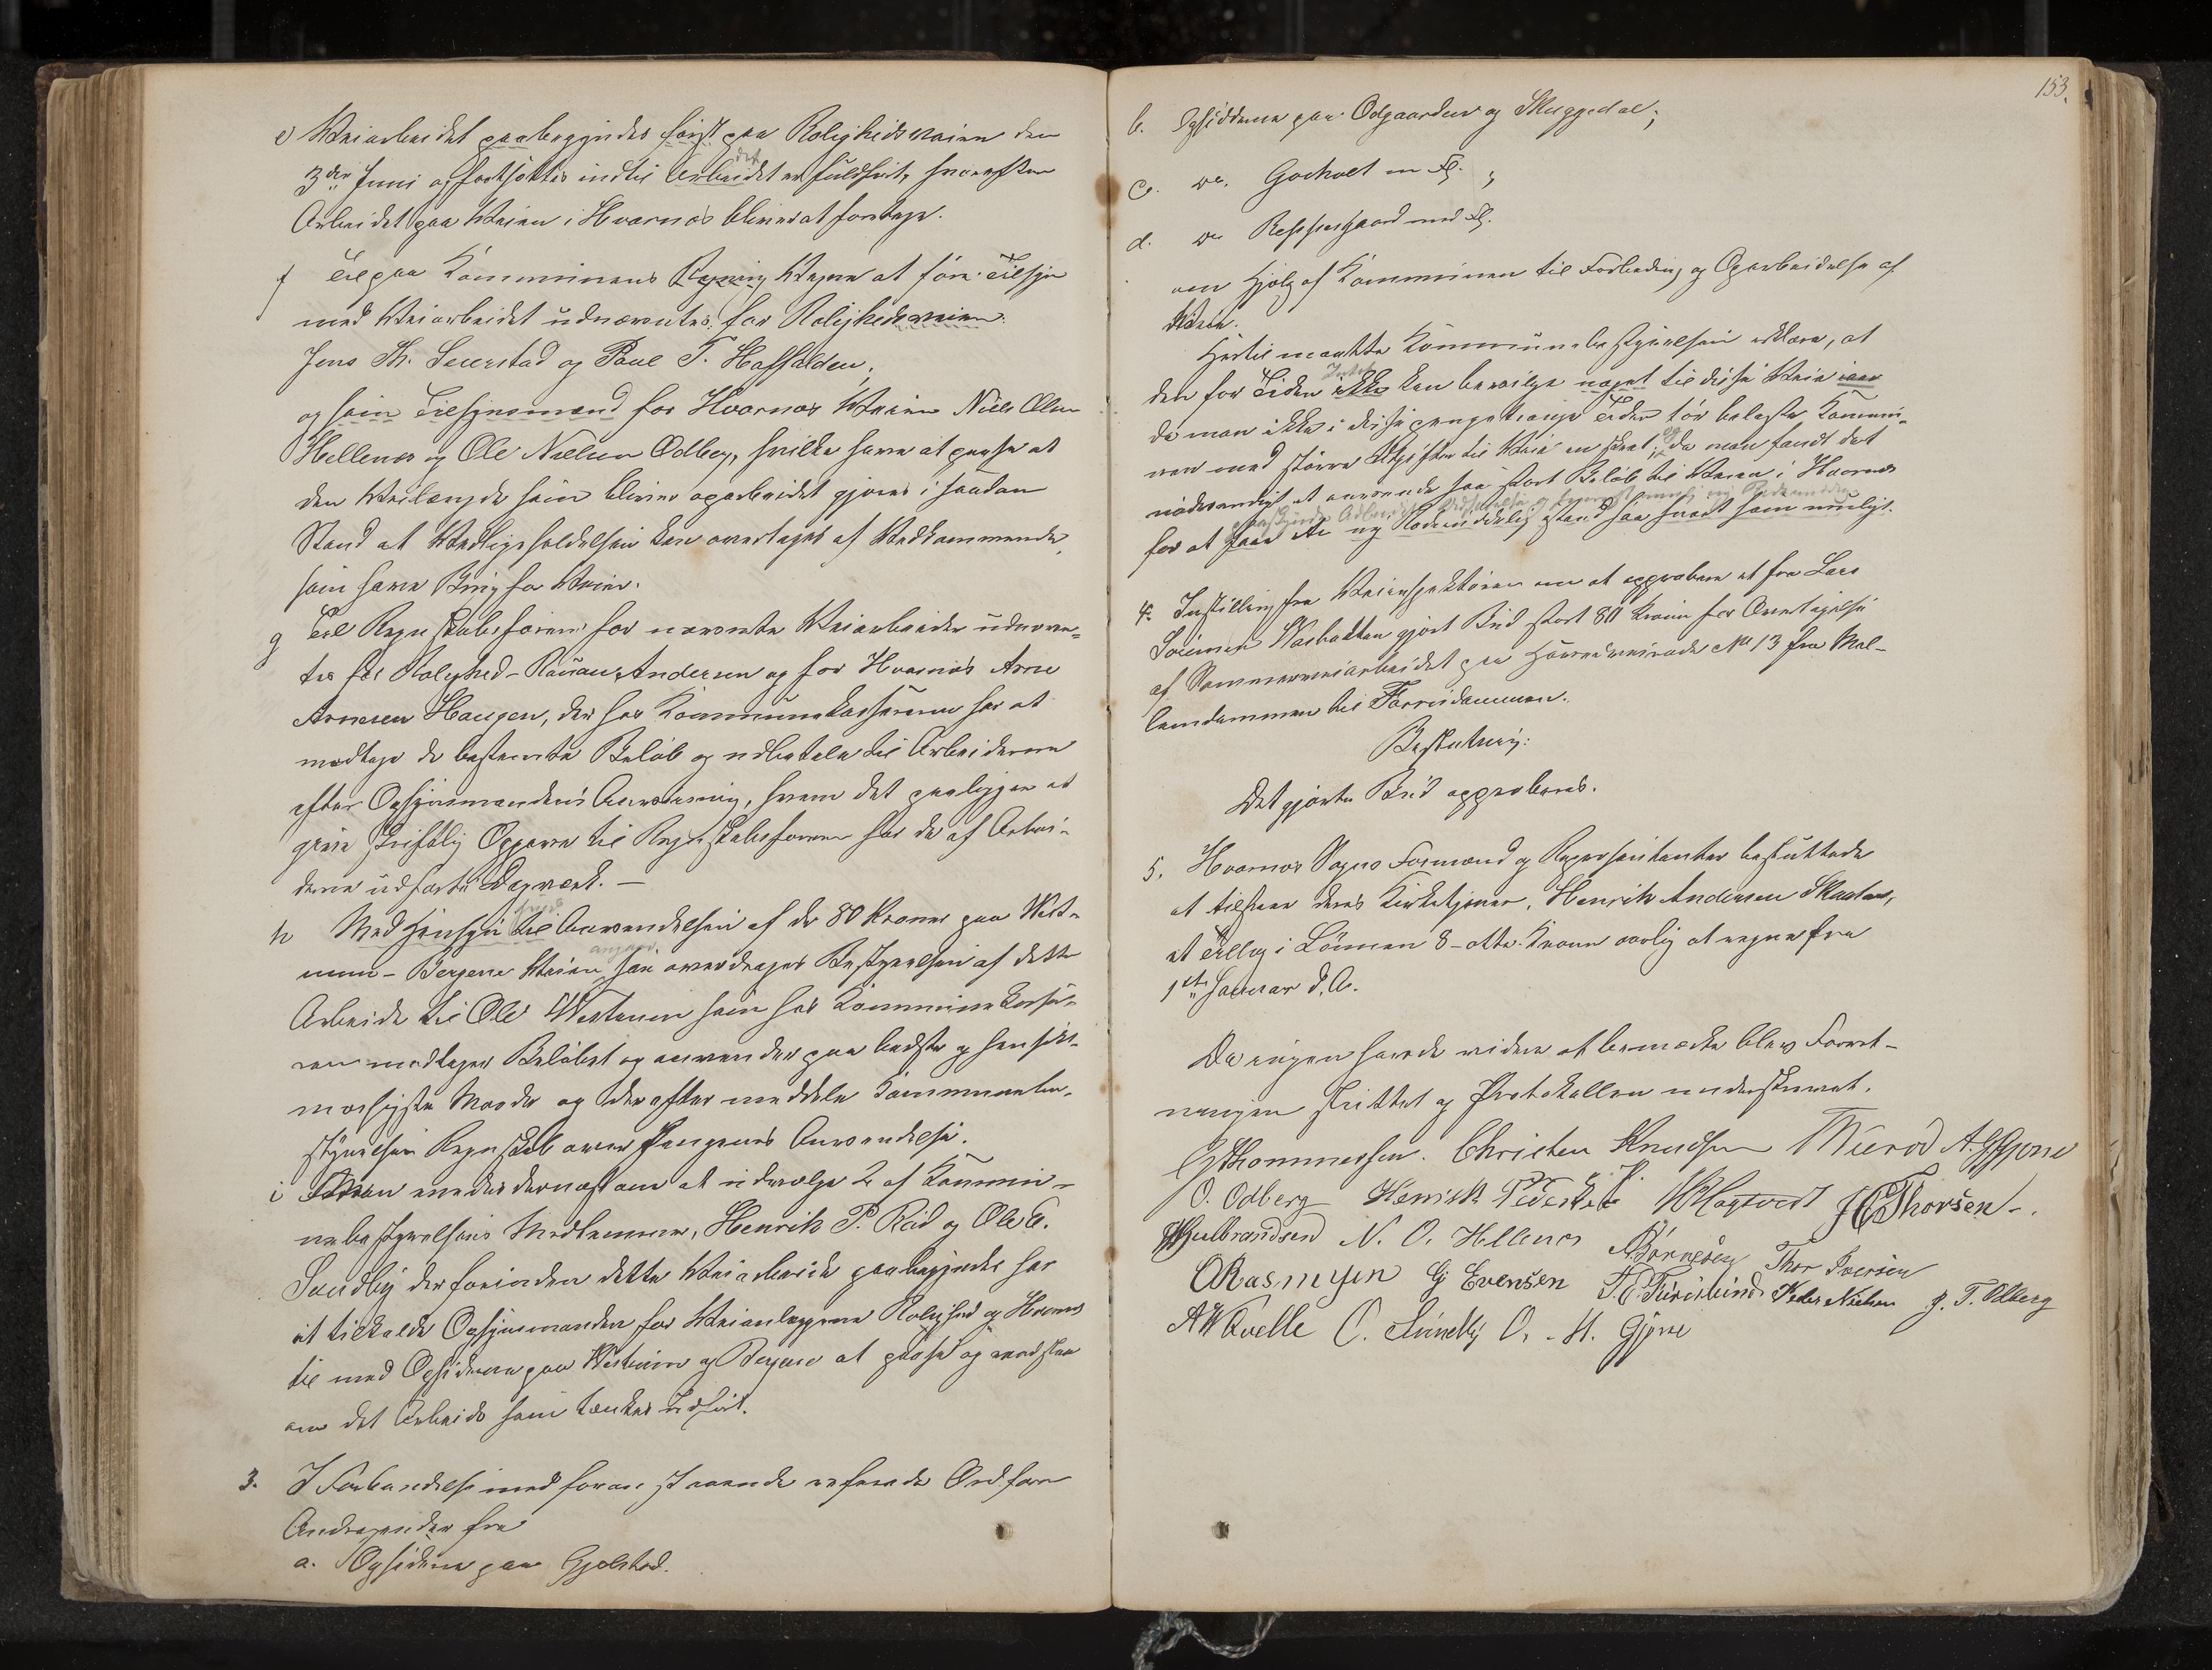 e Veiarbeidet paabegyndes först paa Rolighedsveien den
3die Juni og fortsættes indtil Arbeidet er fuldfört, hvorefter
Arbeidet paa Veien i Hvarnæs bliver at foretage.
f Til paa Kommunens Vegne at före Tilsyn
med Veiarbeidet udnævntes for Rolighedsveien
Jens Th. Seierstad og Paul T. Hafsalden,
og som Tilsynsmænd for Hvarnæs Veien Niels Olsen
Hellenes og Ole Nielsen Odberg, hvilke have at paase at
den Veilængde som bliver oparbeidet gjöres i saadan
Stand at Vedligeholdelsen kan overtages af Vedkommende,
som have Brug for Veien.
g Til Regnskabsförere for nævnte Veiarbeider udnævn-
tes for Rolighed - Andersen og for Hvarnæs Arne
Arnesen Haugen, der hos Kommunekassereren har at
modtage de bestemte Belöb og udbetale til Arbeiderne
efter Opsynsmandens Anvisning, hvem det paaligger at
give skriftlig Opgave til Regnskabsföreren for de af Arbei-
derne udförte Dagværk. —
h Med Hensyn til Anvendelsen af de 80 Kroner paa Vest-
- Bergene Veien saa overdrages Bestyrelsen af dette
Arbeide til Ole som hos Kommunekasse-
reren modtager Belöbet og anvender paa bedste og hensigts-
mæssigste Maade og derefter meddele Kommunebe-
styrelsen Regnskab over Pengenes Anvendelse.
i enedes dernæst om at udvælge 2 af Kommu-
nebestyrelsens Medlemmer, Henrik P. Röd og Ole C.
Sundby der forinden dette Veiarbeide paabegyndes har
at tilkalde Opsynsmanden for Veianlæggene Rolighed og Hvarnæs
til med Opsidderne paa og Bergene at paase og
om det Arbeide som tænkes udfört.
3. I Forbindelse med foranstaaende refererede Ordföreren
Andragender fra
a. Opsidderne paa Gjelstad.
153.
b. Opsidderne paa Odgaarden og Skuggedal;
c. do. Godholt m Fl. ;
d. do Reppesgaard med Fl.
om Hjælp af Kommunen til Forbedring og Oparbeidelse af
Veie.
Hertil maatte Kommunebestyrelsen erklære, at
den for Tiden ikke kan bevilge noget til disse Veie
da man ikke i disse pengetrange Tider tör belaste Kommu-
nen med större Udgifter til Veie en skeet, da man fandt det
nödvendigt at anvende saa stort Belöb til Veien i Hvarnæs
for at ny Rodeinddeling istand saa snart som muligt.
4. Indstilling fra Veiinspektören om at approbere et fra Lars
gjort Bud stort 80 Kroner for Overtagelse
af Sommerveiarbeidet paa Hovedveirode No 13 fra
til Farrisdammen.
Beslutning:
Det gjorte Bud approberes.
5. Hvarnæs Sogns Formænd og Repræsentanter besluttede
at tilstaa deres Kirketjener, Henrik Andersen
et Tillæg i Lönnen 8 - otte Kroner aarlig at regne fra
1ste Januar d. A.
Da ingen havde videre at bemærke blev Forret-
ningen sluttet og Protokollen underskrevet.
Christen Knudsen A. Gjone
O. Odberg Henrik
JCThorsen.
Gulbrandsen N. O. Hellenes Thor Iversen
O Rasmusen G Evensen Peder Nielsen J. T. Odberg
A W Qvelle O. Sundby O. M. Gjone